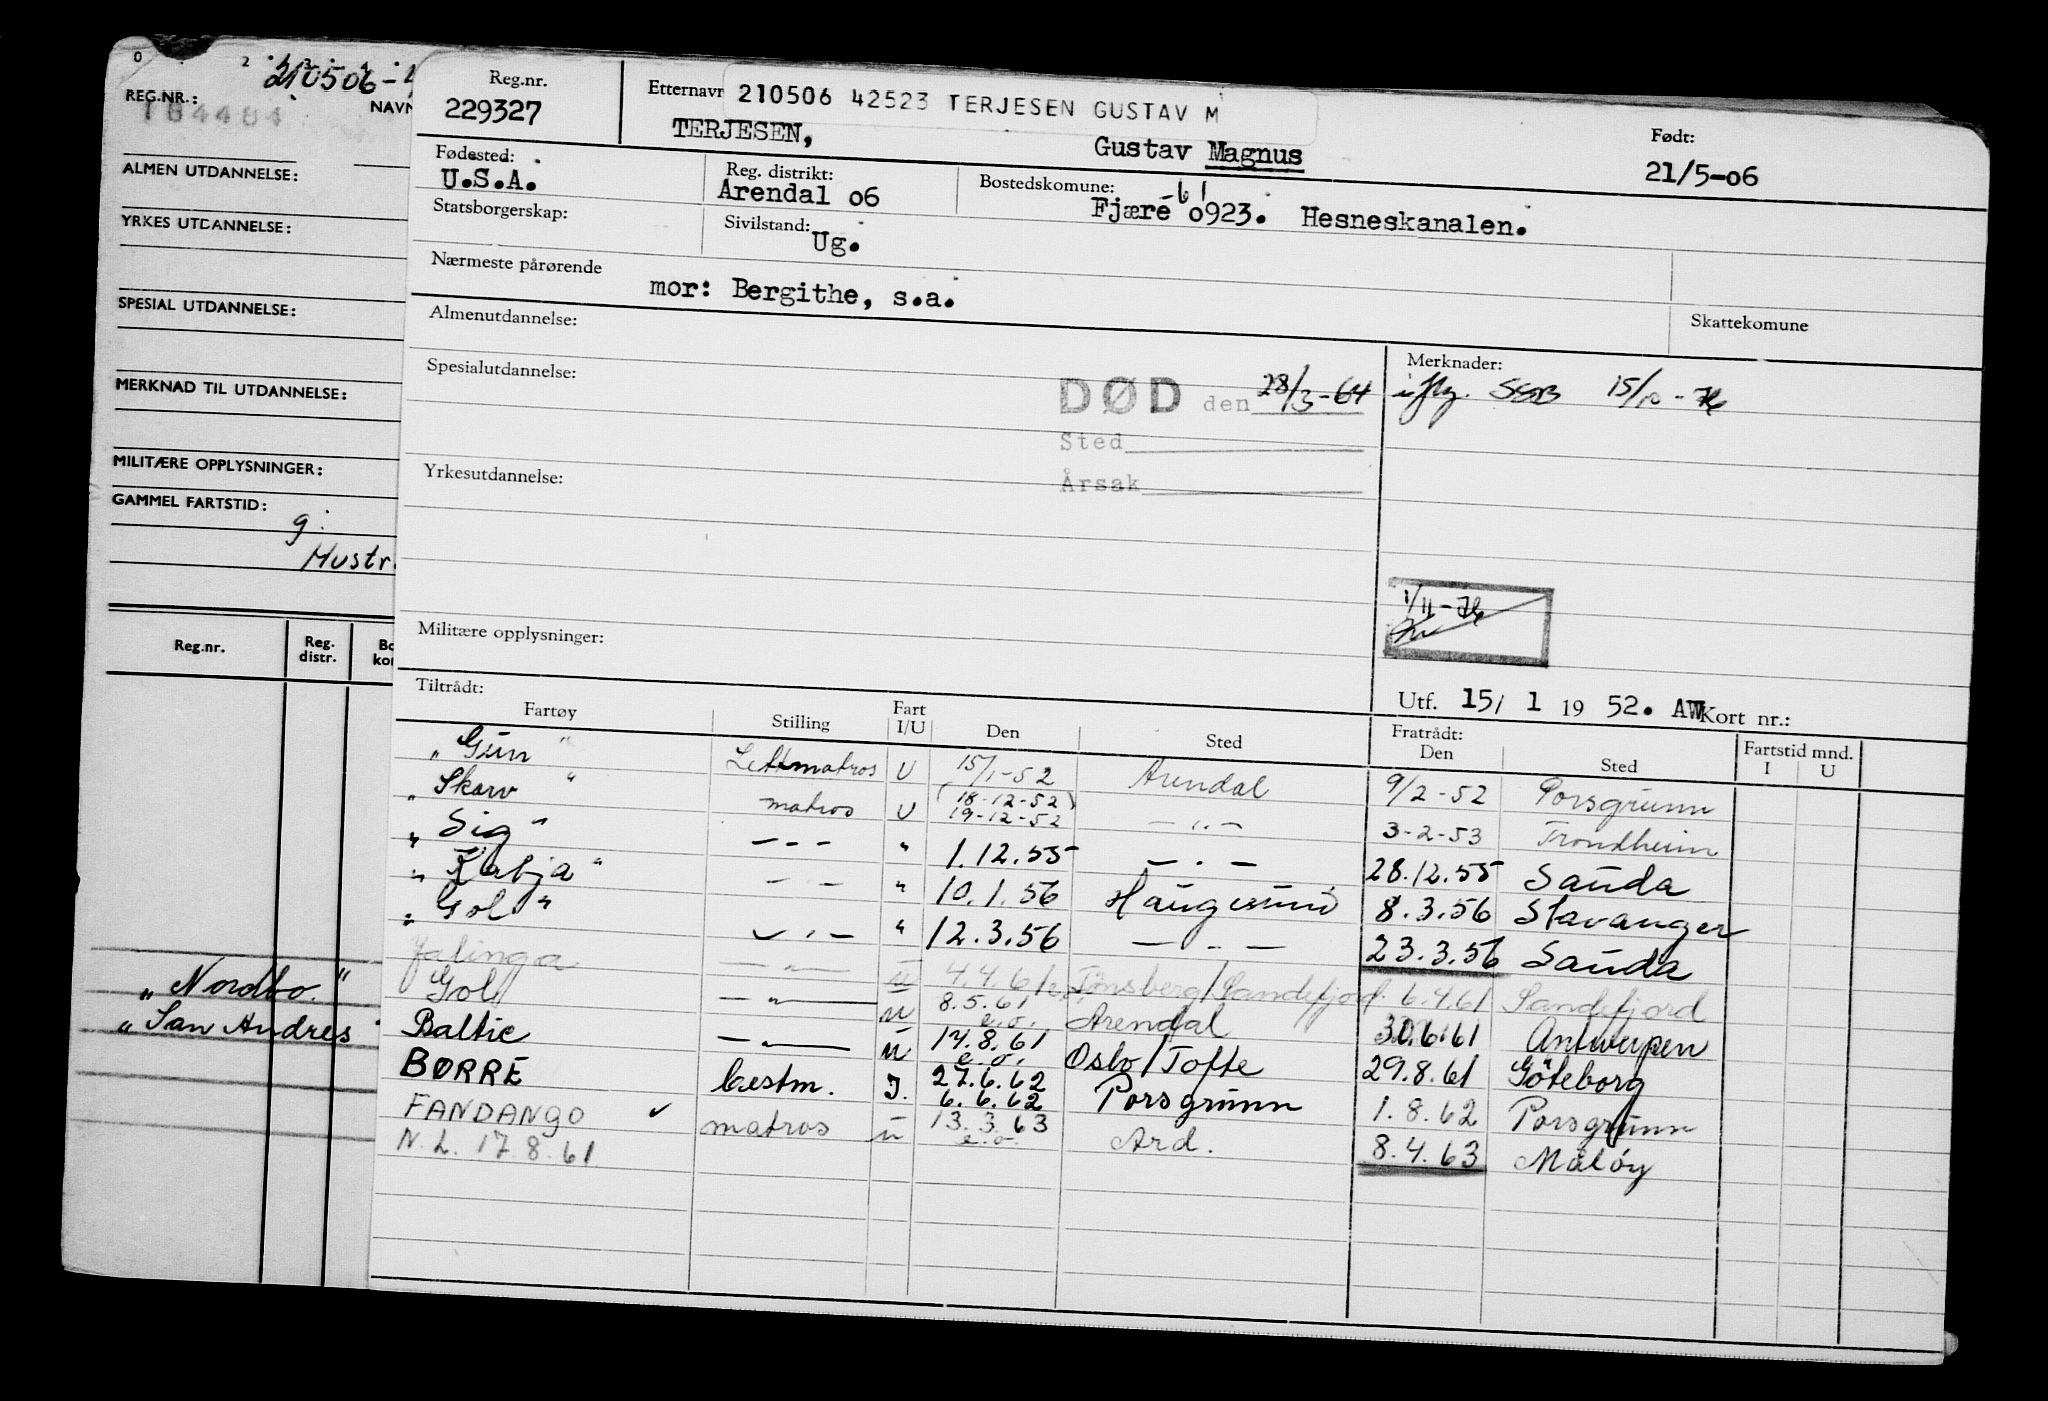 0 2
210506-
REG.NR.:
NAVN
ALMEN UTDANNELSE:
YRKES UTDANNELSE:
SPESIAL UTDANNELSE:
MERKNAD TIL UTDANNELSE:
MILITÆRE OPPLYSNINGER:
GAMMEL FARTSTID:
g.
Mustr
Reg.nr. Reg. distr. Bo kor
„ Nordbo. "
„ San Andres "
Reg.nr.
229327
Etternavn
210506 42523 TERJESEN GUSTAV M
TERJESEN, Gustav Magnus
Født:
21/5-06
Fødested:
U.S.A.
Reg. distrikt:
Arendal 06
Bostedskomune:
Fjære 0923. Hesneskanalen.
Statsborgerskap:
Sivilstand:
Ug.
Nærmeste pårørende
mor: Bergithe, s.a.
Skattekomune
Almenutdannelse:
Spesialutdannelse:
DØD den 28/3-64
Sted
Årsak
Merknader:
iflg. SSB 15/10-76
Yrkesutdannelse:
1/11-76
Militære opplysninger:
Utf. 15/ 1 19 52. AW Kort nr.:
Tiltrådt:
Fartøy Stilling Fart I/U Den Sted Fratrådt: Den Sted Fartstid mnd. I U
„ Gun " Lettmatros U 15/1-52 Arendal 9/2-52 Porsgrunn
„ Skarv " matros U (18-12-52) 19-12-52 — „ — 3-2-53 Trondheim
„ Sig " — - — " 1.12.55 — . — 28.12.55 Sauda
„ Katja " — — " 10.1.56 Haugesund 8.3.56 Stavanger
„ Gol " — . — " 12.3.56 — .. — 23.3.56 Sauda
Jalinga — „ — u 4.4.61 Tønsberg/Sandefjord 6.4.61 Sandefjord
Gol — „ — u 8.5.61 e.o. Arendal 30.6.61 Antwerpen
Baltic — „ — u 17.8.61 e.o. Oslo/Tofte 29.8.61 Göteborg
BØRRE bestm. I. 27.6.62 6.6.62 Porsgrunn 1.8.62 Porsgrunn
FANDANGO ✓ matros u 13.3.63 e.o. Ard. 8.4.63 Måløy
N.L. 17.8.61